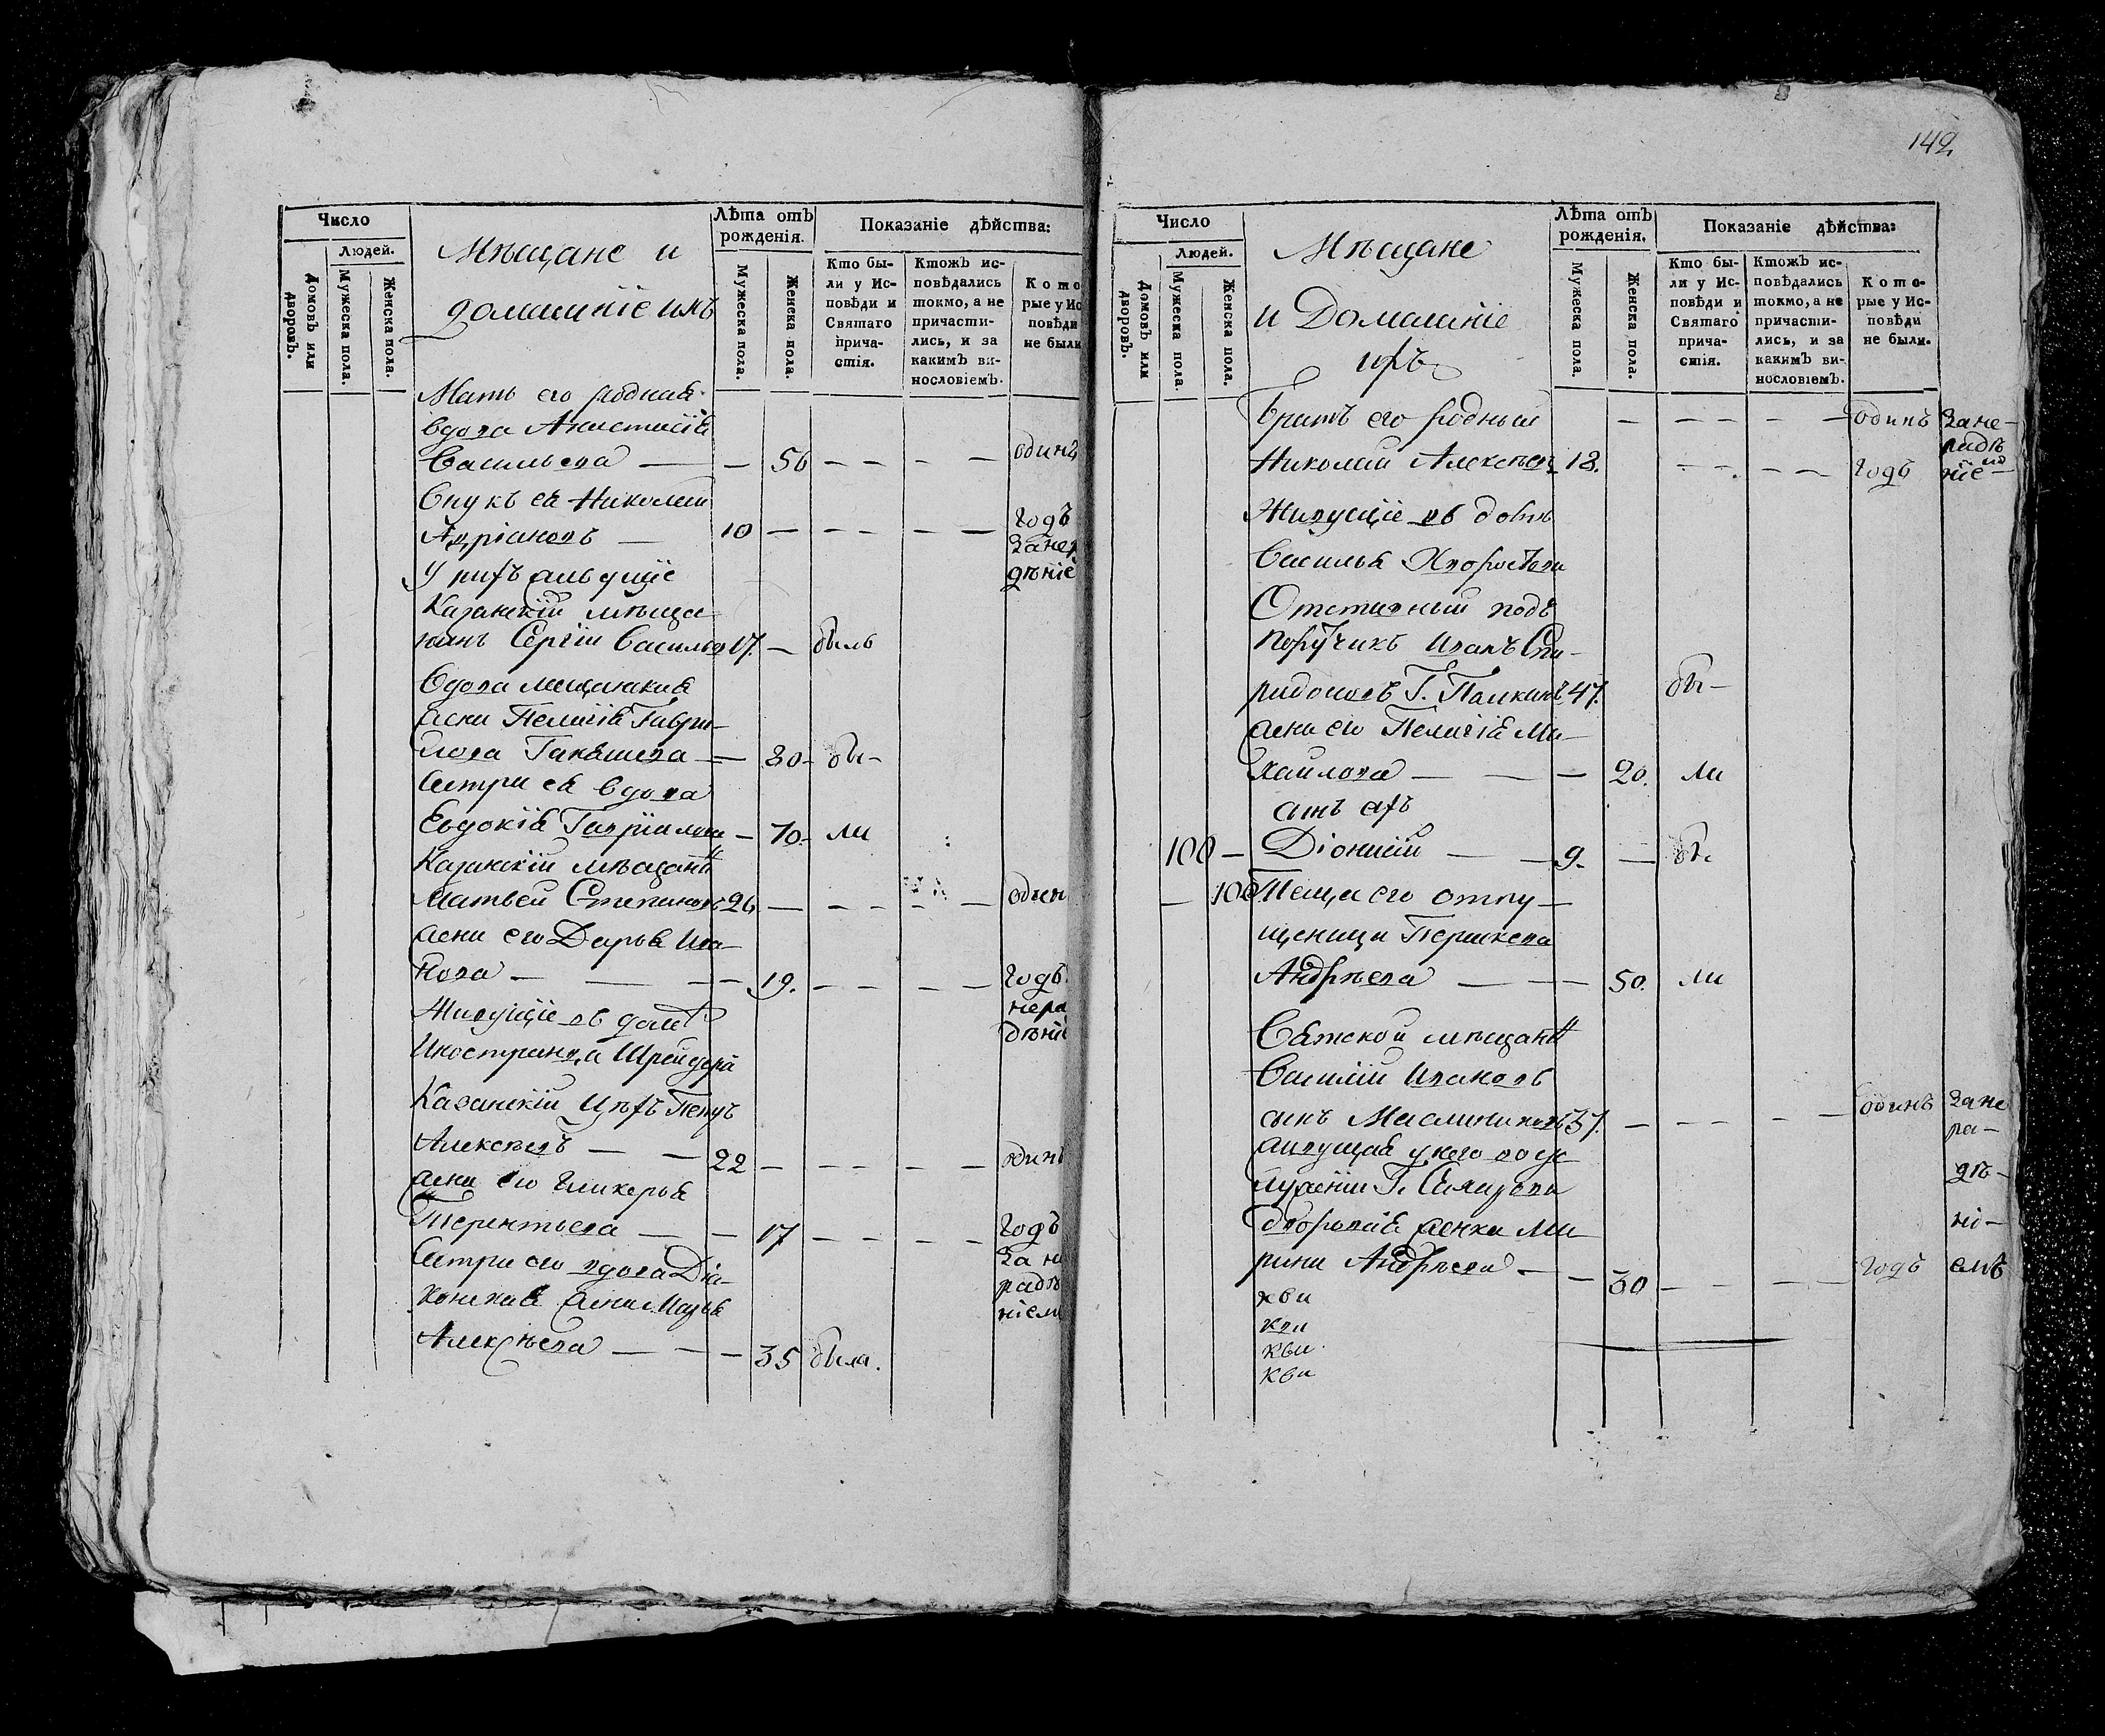 142
Число
Людей.
Домовъ или дворовъ.
Мужеска пола.
Женска пола.
Мѣщане и
домашніе ихъ
Лѣта отъ
рожденія.
Мужеска пола.
Женска пола.
Показаніе дѣйства:
Кто бы-
ли у Ис-
повѣди и
Святаго
прича-
стія.
Ктожъ ис-
повѣдались
токмо, а не
причасти-
лись, и за
какимъ ви-
нословіемъ.
Кото
рые у Ис
повѣди
не были
Мать его родная
вдова Анастасія
Васильева — — 56 — — — — одинъ
Внукъ ея Николай
Адріановъ — 10 — — — — — годъ
зане
У нихъ живущіе
дѣніе
Казанскій мѣща
нинъ Сергій Васильев 17. — былъ
Вдова мещанская
жена Пелагія Гаври-
лова — 30 — бы-
Сестра ея вдова
Евдокія Гавріилова — 70 — ли
Казанскій мѣщан
Матвей Степановъ 26 — — — — — один
жена его Дарья Ива
нова — — — 19. — — — — годъ
нера
Живущіе въ домѣ
дѣні
Иностранца Шрейдера
Казанскій Цѣхъ
Алексѣевъ — — 22 — — — — — один
жена его Гликерья
Терентьева — — 17 — — — — годъ
За не
Сестра его вдова Діа-
радѣ
конская жена Марья
ніем
Алексѣева — — — 35 была.
Число
Людей.
Домовъ или дворовъ.
Мужеска пола.
Женска пола.
Мѣщане
и Домашніе
ихъ
Лѣта отъ
рожденія.
Мужеска пола.
Женска пола.
Показаніе дѣйства:
Кто бы-
ли у Ис-
повѣди и
Святаго
прича-
стія.
Ктожъ ис-
повѣдались
токмо, а не
причасти-
лись, и за
какимъ ви-
нословіемъ.
Кото-
рые у Ис-
повѣди
не были.
Братъ его родный — — — — — — одинъ зане-
радѣ
Николай Алексѣевъ 18. — — — — годъ ніе
Живущіе въ домѣ
Василья
Отставный подъ
поручикъ Иванъ Спи-
ридоновъ Г. Палкинъ 47. бы-
жена его Пелагія Ми-
хаилова — — — 20. ли
сынъ ихъ
100 — Діонисій — — 9. — бы.
— 100 Теща его отпу-
щеница
Андрѣева — — — 50. ли
Вятской мѣщан
Василій Ивановъ
сынъ Масленниковъ 37. — — — — — одинъ зане
ра-
живущая у него въ
дѣ-
Г.
дворовая женка Ма
ні-
рина Андрѣева — — 30 — — — — годъ емъ
кви
кви
кви
кви